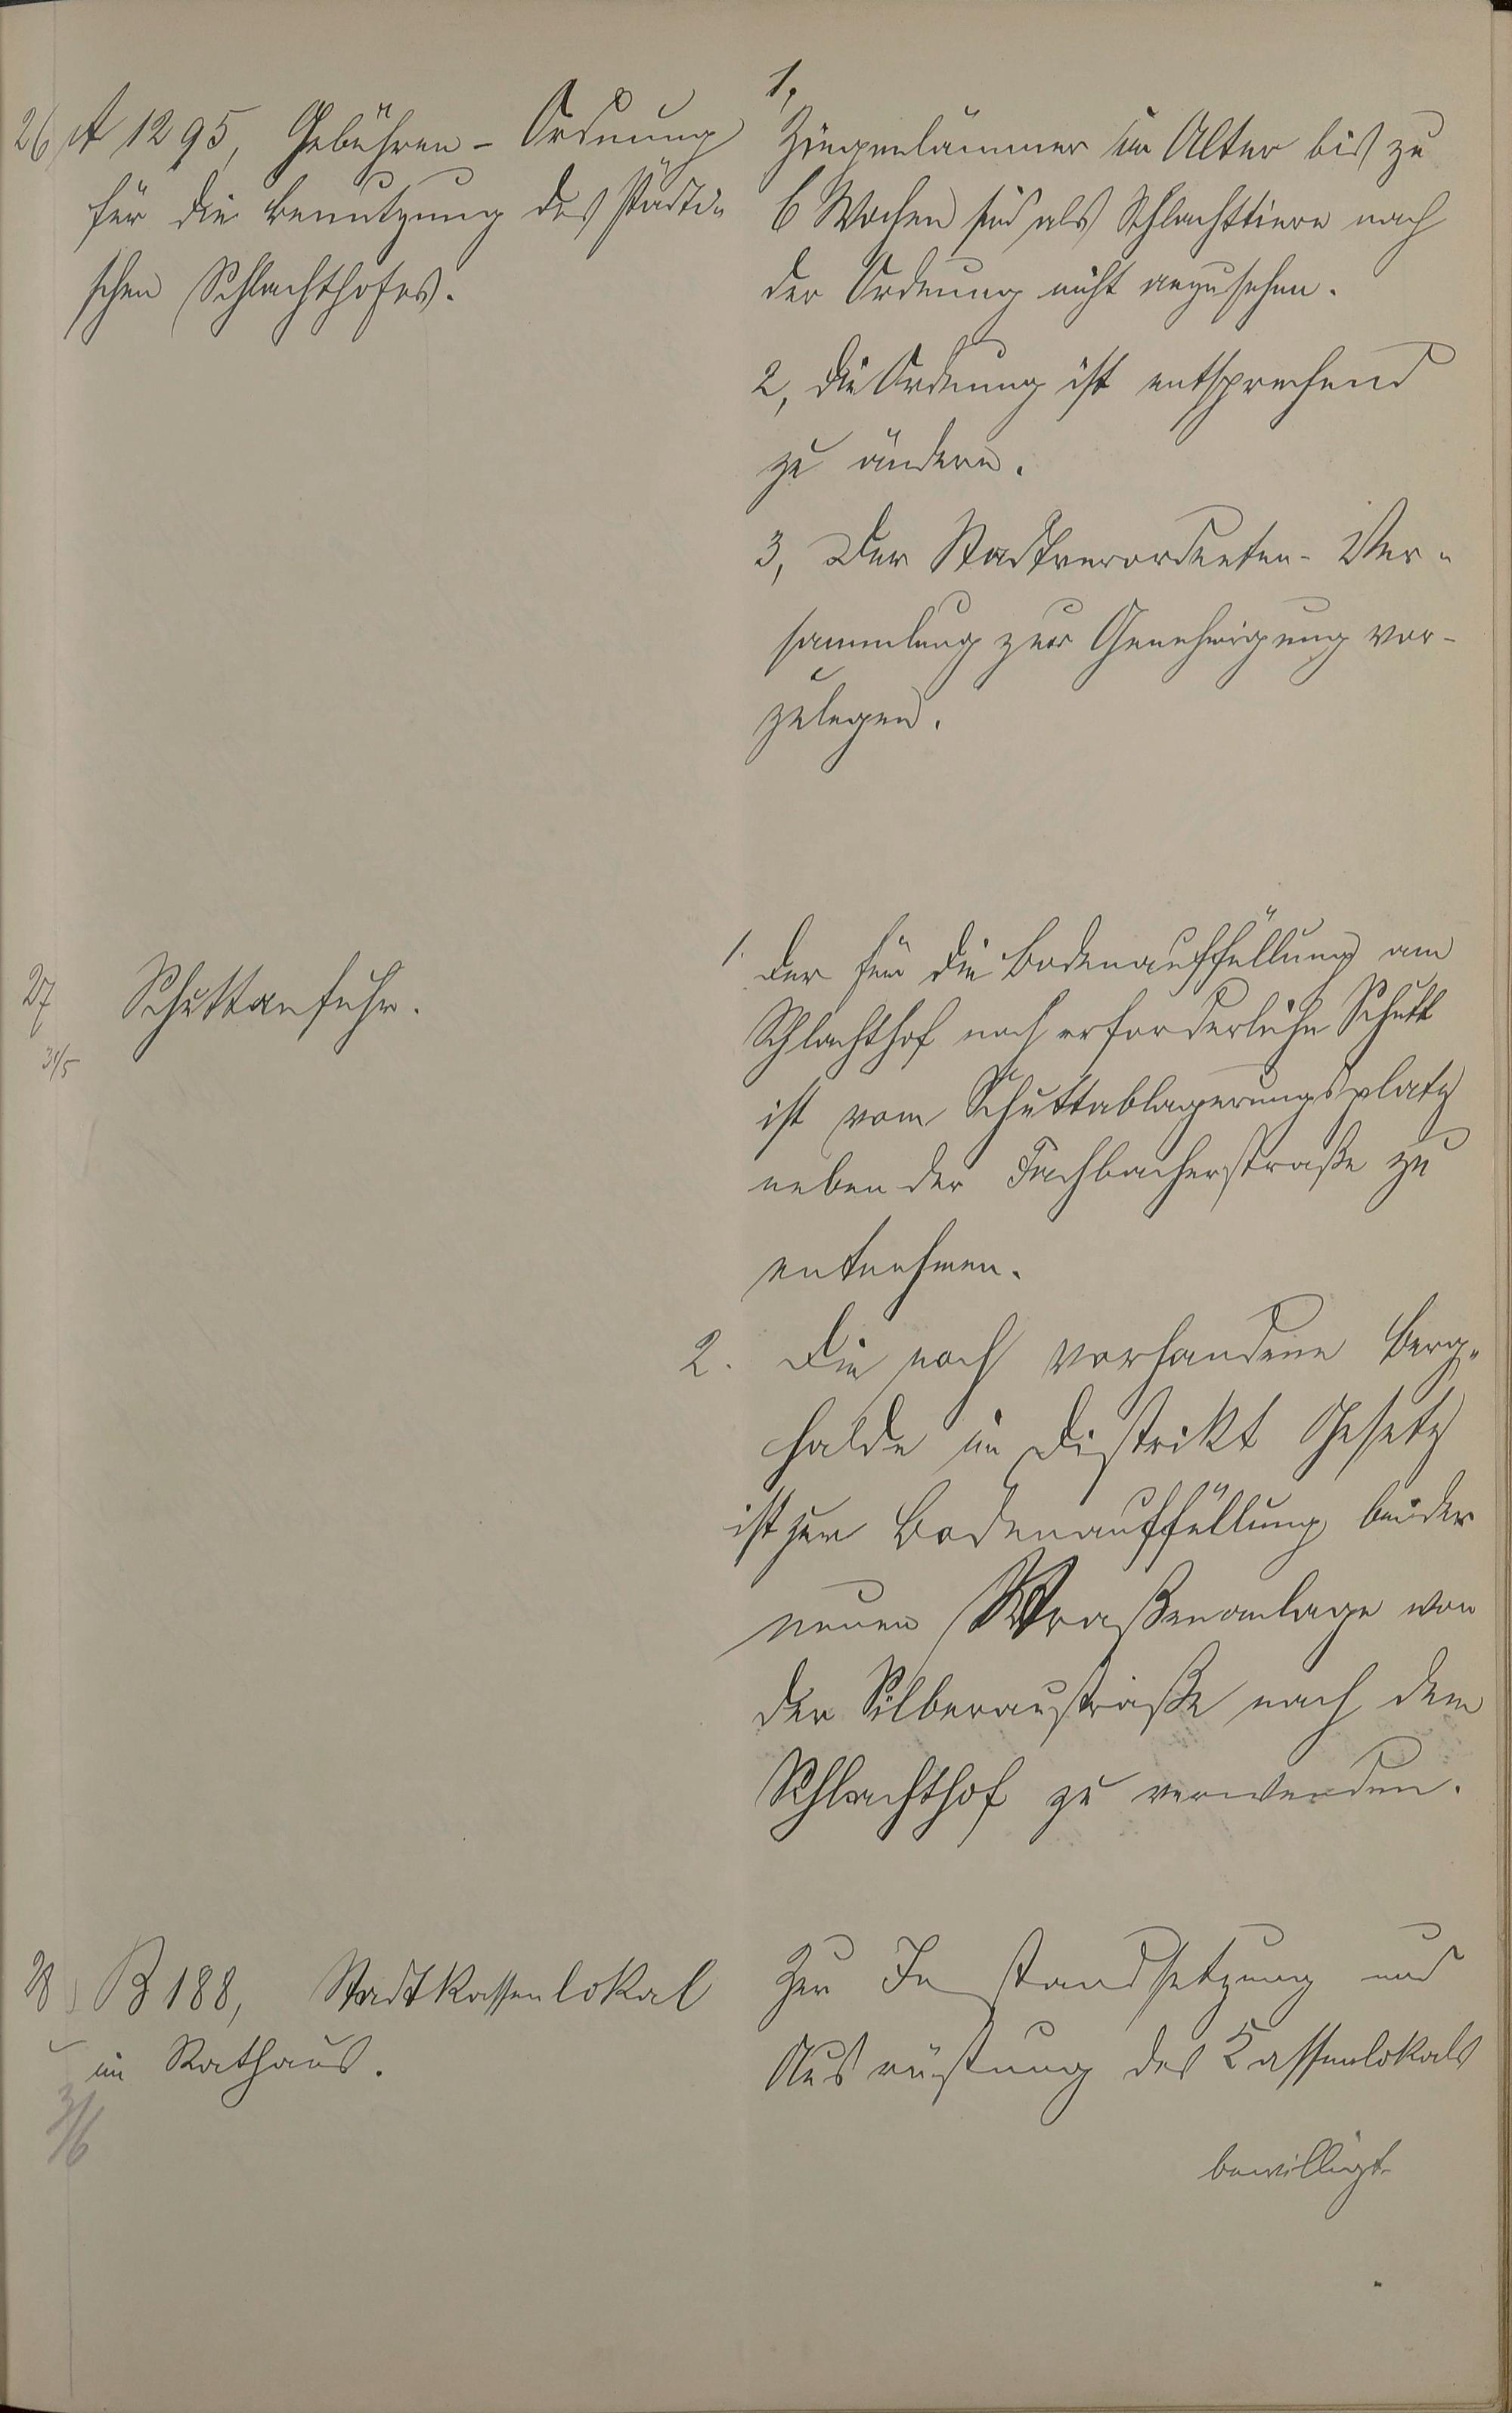 26 A 1295, Gebühren-Ordnung
für die Benutzung des städti-
schen Schlachthofes.
1,
Ziegenlämmer im Alter bis zu
6 Wochen sind als Schlachttiere nach
der Ordnung nicht anzusehen.
2, Die Ordnung ist entsprechend
zu ändern.
3, Der Stadtverordneten-Ver-
sammlung zur Genehmigung vor-
zulegen.
27 Schuttanfuhr.
31/5
1. Der für die Bodenauffüllung am
Schlachthof noch erforderliche Schutt
ist vom Schuttablagerungsplatz
neben der Fachbacherstraße zu
entnehmen.
2. Die noch vorhandene Berg-
halde im Distrikt Gesetz
ist zur Bodenauffüllung bei der
neuen Straßenanlage von
der Silberaustraße nach dem
Schlachthof zu verwenden.
28 B 188, Stadtkassenlokal
im Rathaus.
3/6
Zur Instandsetzung und
Ausrüstung des Kassenlokals
bewilligt